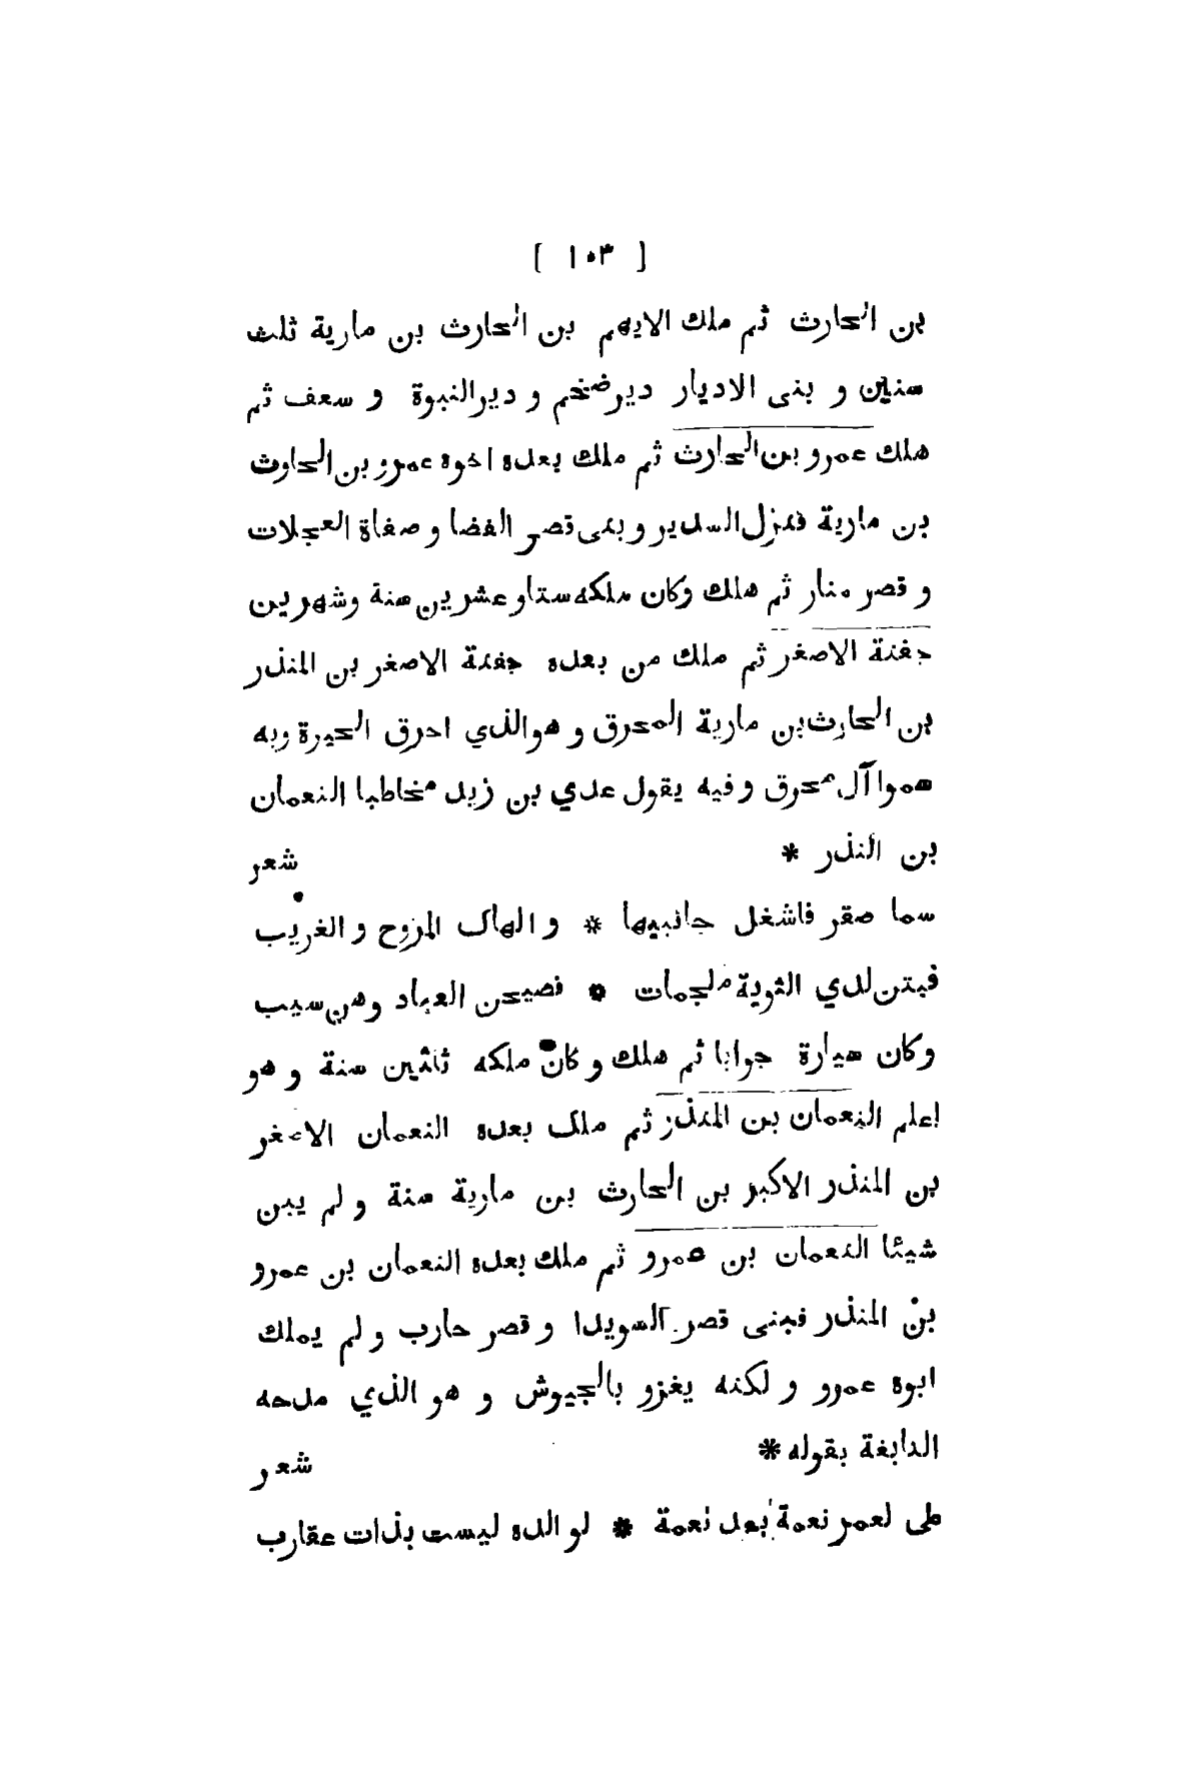 [ ١٠٣ ]
بن الحارث ثم ملك الايهم بن الحارث بن مارية ثلث
سنين و بنى الاديار ديرضخم و ديرالنبوة و سعف ثم
هلك عمرو بن الحارث ثم ملك بعده اخوه عمرو بن الحارث
بن مارية فنزل السدير و بنى قصر الفضا و صفاة العجلات
و قصر منار ثم هلك وكان ملكه ستا و عشرين سنة وشهرين
جفنة الاصغر ثم ملك من بعده جفنة الاصغر بن المنذر
بن الحارث بن مارية المحرق و هوالذي احرق الحيرة وبه
سموا آل محرق و فيه يقول عدي بن زيد مخاطبا النعمان
بن النذر *
شعر
سما صقر فاشغل جانبيها * و الهاك المروح و الغريب
فبتن لدي الثوية ملجمات * فصبحن العباد وهن سيب
وكان سيارة جوابا ثم هلك و كان ملكه ثلثين سنة و هو
اعلم النعمان بن المنذر ثم ملك بعده النعمان الاصغر
بن المنذر الاكبر بن الحارث بن مارية سنة و لم يبن
شيئا النعمان بن عمرو ثم ملك بعده النعمان بن عمرو
بن المنذر فبنى قصر السويدا و قصر حارب و لم يملك
ابوه عمرو و لكنه يغزو بالجيوش و هو الذي مدحه
النابغة بقوله *
شعر
علي لعمر نعمة بعد نعمة * لوالده ليست بذات عقارب